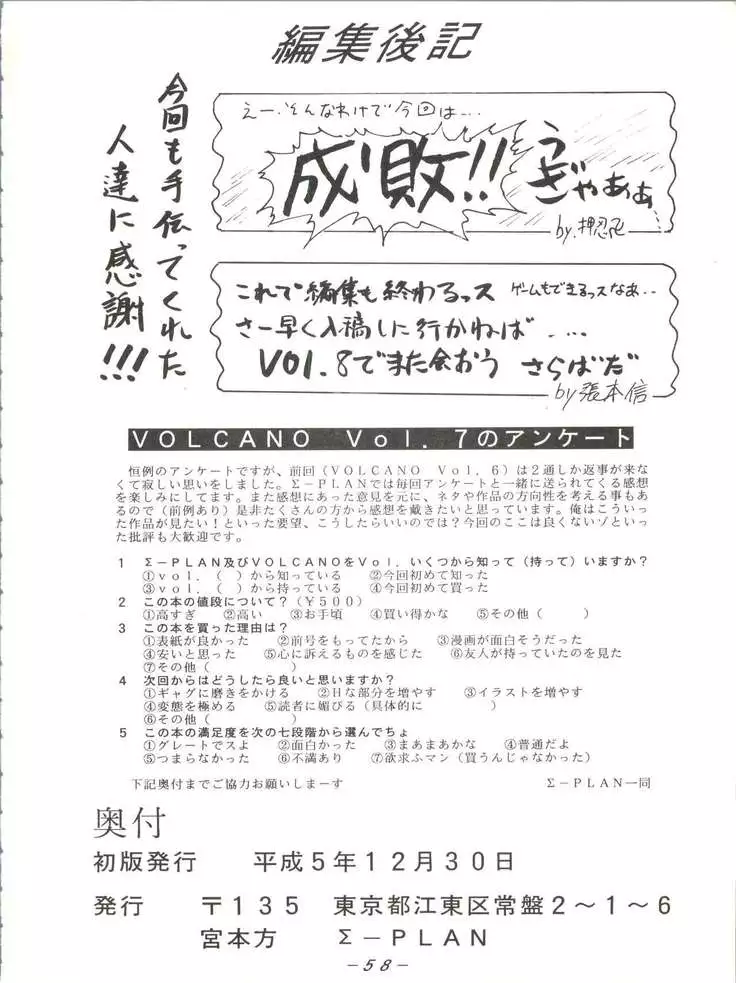 編集後記
今回も手伝ってくれた
人達に感謝!!!
えー、そんなわけで今回は…
成敗!!
うぎゃあぁ
by.押忍
これで編集も終わるっス ゲームもできるっスなぁ..
さー早く入稿しに行かねば....
VOl.8でまた会おう さらばだ
by張本信
VOLCANO Vol.7のアンケート
恒例のアンケートですが、前回(VOLCANO Vol.6)は2通しか返事が来な
くて寂しい思いをしました。Σ−PLANでは毎回アンケートと一緒に送られてくる感想
を楽しみにしてます。また感想にあった意見を元に、ネタや作品の方向性を考える事もあ
るので(前例あり)是非たくさんの方から感想を戴きたいと思っています。俺はこういっ
た作品が見たい!といった要望、こうしたらいいのでは?今回のここは良くないゾといっ
た批評も大歓迎です。
1 Σ−PLAN及びVOLCANOをVol.いくつから知って(持って)いますか?
①vol.( )から知っている ②今回初めて知った
③vol.( )から持っている ④今回初めて買った
2 この本の値段について?(¥500)
①高すぎ ②高い ③お手頃 ④買い得かな ⑤その他( )
3 この本を買った理由は?
①表紙が良かった ②前号をもってたから ③漫画が面白そうだった
④安いと思った ⑤心に訴えるものを感じた ⑥友人が持っていたのを見た
⑦その他( )
4 次回からはどうしたら良いと思いますか?
①ギャグに磨きをかける ②Hな部分を増やす ③イラストを増やす
④変態を極める ⑤読者に媚びる(具体的に )
⑥その他( )
5 この本の満足度を次の七段階から選んでちょ
①グレートでスよ ②面白かった ③まあまあかな ④普通だよ
⑤つまらなかった ⑥不満あり ⑦欲求ふマン(買うんじゃなかった)
下記奥付までご協力お願いしまーす Σ−PLAN一同
奥付
初版発行 平成5年12月30日
発行 〒135 東京都江東区常盤2〜1〜6
宮本方 Σ−PLAN
−58−